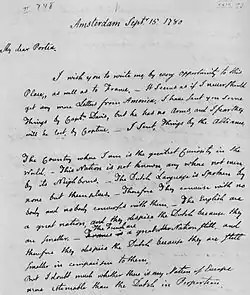 Amsterdam Septr. 15 1780
My dear Portia
I wish you to write me by every opportunity to this
Place, as well as to France. It seems as if I never should
get any more Letters from America. I have sent you some
Things by Captn. Davis, but he has no Arms, and I fear they
will be lost, by Capture. I sent Things by the Alliance
The Country where I am is the greatest Curiosity in the
World. This Nation is not known any where, not even
by its Neighbours. The Dutch Language is Spoken by
none but themselves. Therefore They converse with no
body and nobody converses with them. The English are
a great nation, and they despise the Dutch because they
are smaller. The French are a greater Nation still, and
therefore they despise the Dutch because they are still
smaller in comparison to them.
But I doubt much whether there is any Nation of Europe
more estimable than the Dutch, in Proportion